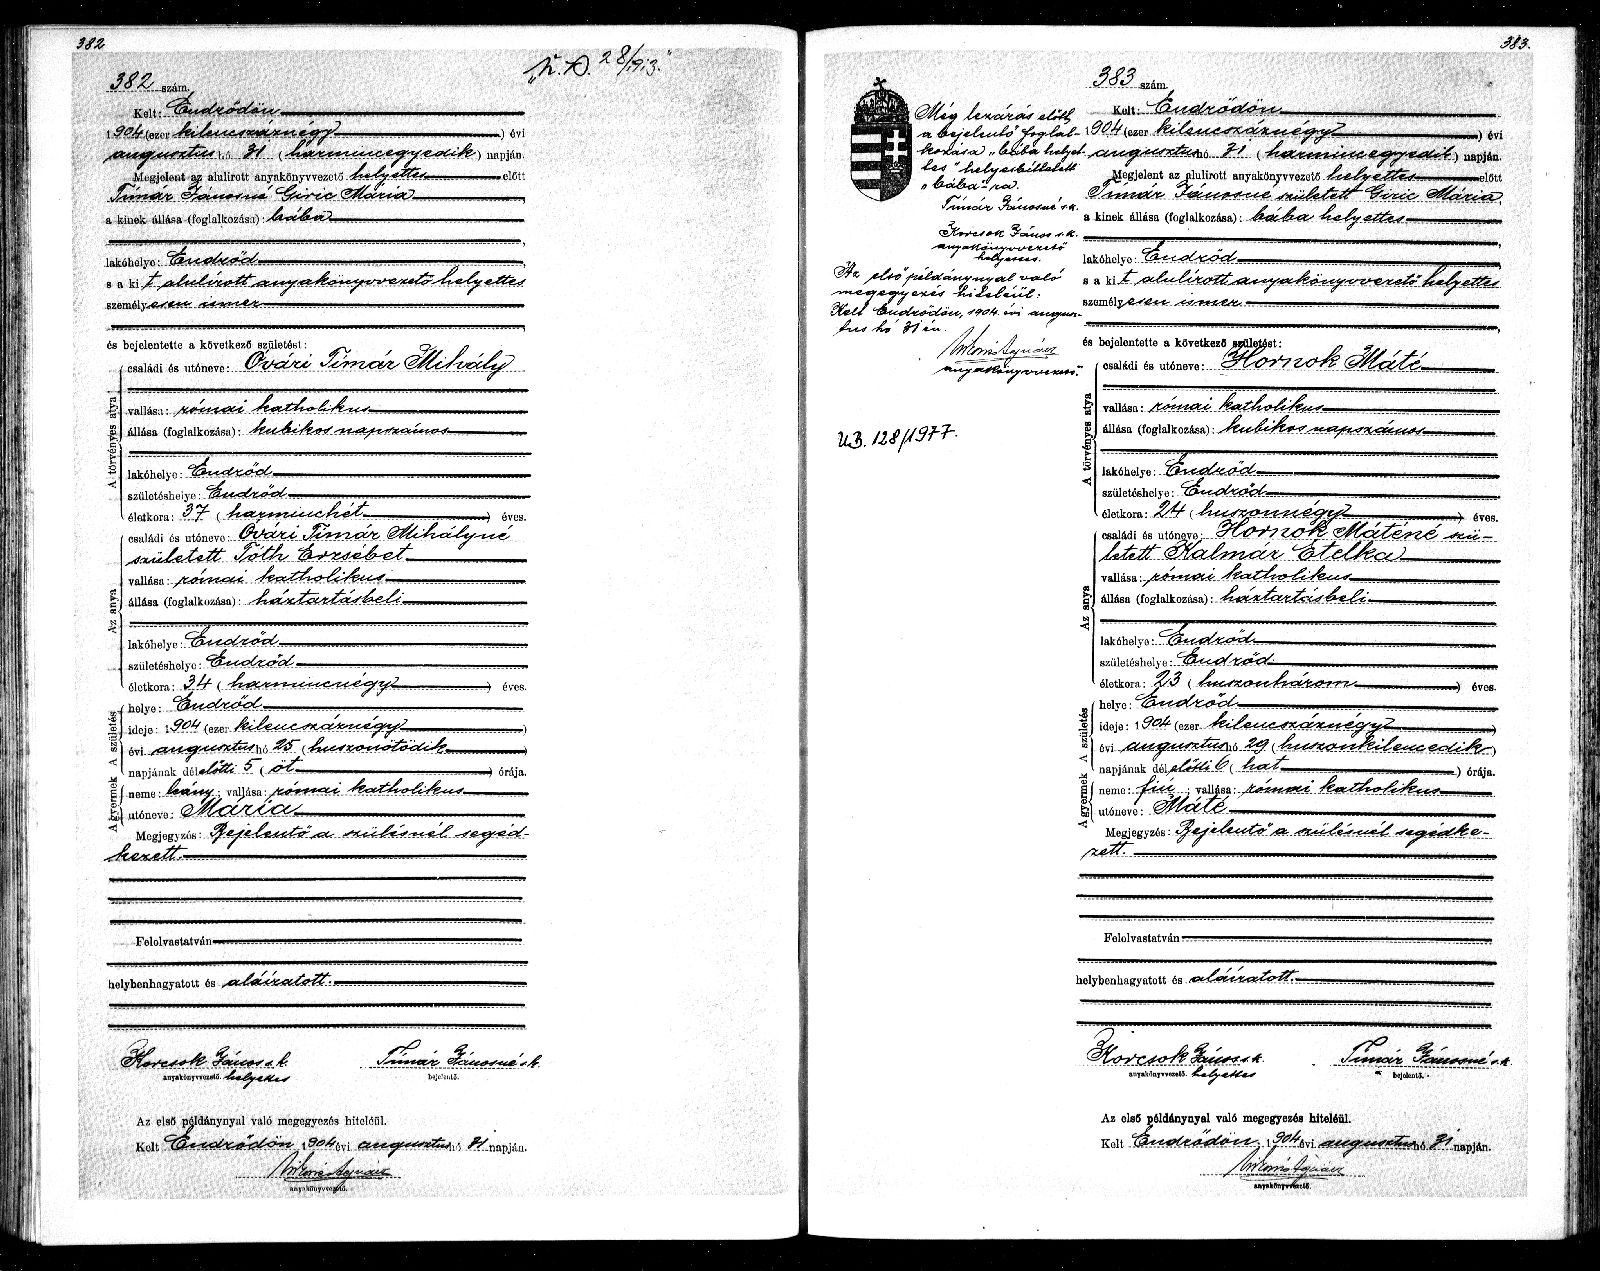 382
382 szám.
Kelt: Endrődön
1904 (ezer kilencszáznégy) évi
augusztus hó 31 (harmincegyedik) napján.
Megjelent az alulirott anyakönyvvezető helyettes előtt
Tímár Jánosné Giric Mária
a kinek állása (foglalkozása): bába
lakóhelye: Endrőd
s a kit alulírott anyakönyvvezető helyettes
személyesen ismer
és bejelentette a következő születést:
A törvényes atya
családi és utóneve: Óvári Tímár Mihály
vallása: római katholikus
állása (foglalkozása): kubikos napszámos
lakóhelye: Endrőd
születéshelye: Endrőd
életkora: 37 (harminchét) éves.
Az anya
családi és utóneve: Óvári Tímár Mihályné
született Tóth Erzsébet
vallása: római katholikus
állása (foglalkozása): háztartásbeli
lakóhelye: Endrőd
születéshelye: Endrőd
életkora: 34 (harmincnégy) éves.
A születés
helye: Endrőd
ideje: 1904 (ezer kilencszáznégy)
évi augusztus hó 25 (huszonötödik)
napjának délelőtti 5 (öt) órája.
A gyermek
neme: leány; vallása: római katholikus
utóneve: Mária
Megjegyzés: Bejelentő a szülésnél segéd-
kezett.
Felolvastatván
helybenhagyatott és aláíratott.
Korcsok János s.k. Tímár Jánosné s.k.
anyakönyvvezető. helyettes bejelentő.
Az első példánynyal való megegyezés hiteléül.
Kelt Endrődön, 1904 évi augusztus hó 31 napján.
anyakönyvvezető.
28/1913.
383.
Még lezárás előtt
a bejelentő foglal-
kozása „bába helyet-
tes" helyesbíttetett
„bába"-ra.
Tímár Jánosné s.k.
Korcsok János s.k.
anyakönyvvezető
helyettes.
Az első példánynyal való
megegyezés hiteléül:
Kelt Endrődön, 1904. évi augusz-
tus hó 31 én.
anyakönyvvezető.
U.B. 128/1977.
383 szám.
Kelt: Endrődön
1904 (ezer kilencszáznégy) évi
augusztus hó 31 (harmincegyedik) napján.
Megjelent az alulirott anyakönyvvezető helyettes előtt
Tímár Jánosné született Giric Mária
a kinek állása (foglalkozása): bába helyettes
lakóhelye: Endrőd
s a kit alulírott anyakönyvvezető helyettes
személyesen ismer
és bejelentette a következő születést:
A törvényes atya
családi és utóneve: Hornok Máté
vallása: római katholikus
állása (foglalkozása): kubikos napszámos
lakóhelye: Endrőd
születéshelye: Endrőd
életkora: 24 (huszonnégy) éves.
Az anya
családi és utóneve: Hornok Máténé szü-
letett Kalmár Etelka
vallása: római katholikus
állása (foglalkozása): háztartásbeli
lakóhelye: Endrőd
születéshelye: Endrőd
életkora: 23 (huszonhárom) éves.
A születés
helye: Endrőd
ideje: 1904 (ezer kilencszáznégy)
évi augusztus hó 29 (huszonkilencedik)
napjának délelőtti 6 (hat) órája.
A gyermek
neme: fiú; vallása: római katholikus
utóneve: Máté
Megjegyzés: Bejelentő a szülésnél segédke-
zett.
Felolvastatván
helybenhagyatott és aláíratott.
Korcsok János s.k. Tímár Jánosné s.k.
anyakönyvvezető. helyettes bejelentő.
Az első példánynyal való megegyezés hiteléül.
Kelt Endrődön, 1904 évi augusztus hó 31 napján.
anyakönyvvezető.